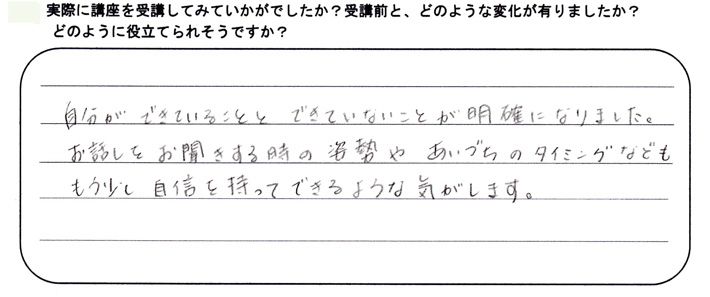 実際に講座を受講してみていかがでしたか？受講前と、どのような変化が有りましたか？
どのように役立てられそうですか？
自分ができていることと できていないことが明確になりました。
お話しをお聞きする時の姿勢や あいづちのタイミングなども
もう少し自信を持ってできるような気がします。